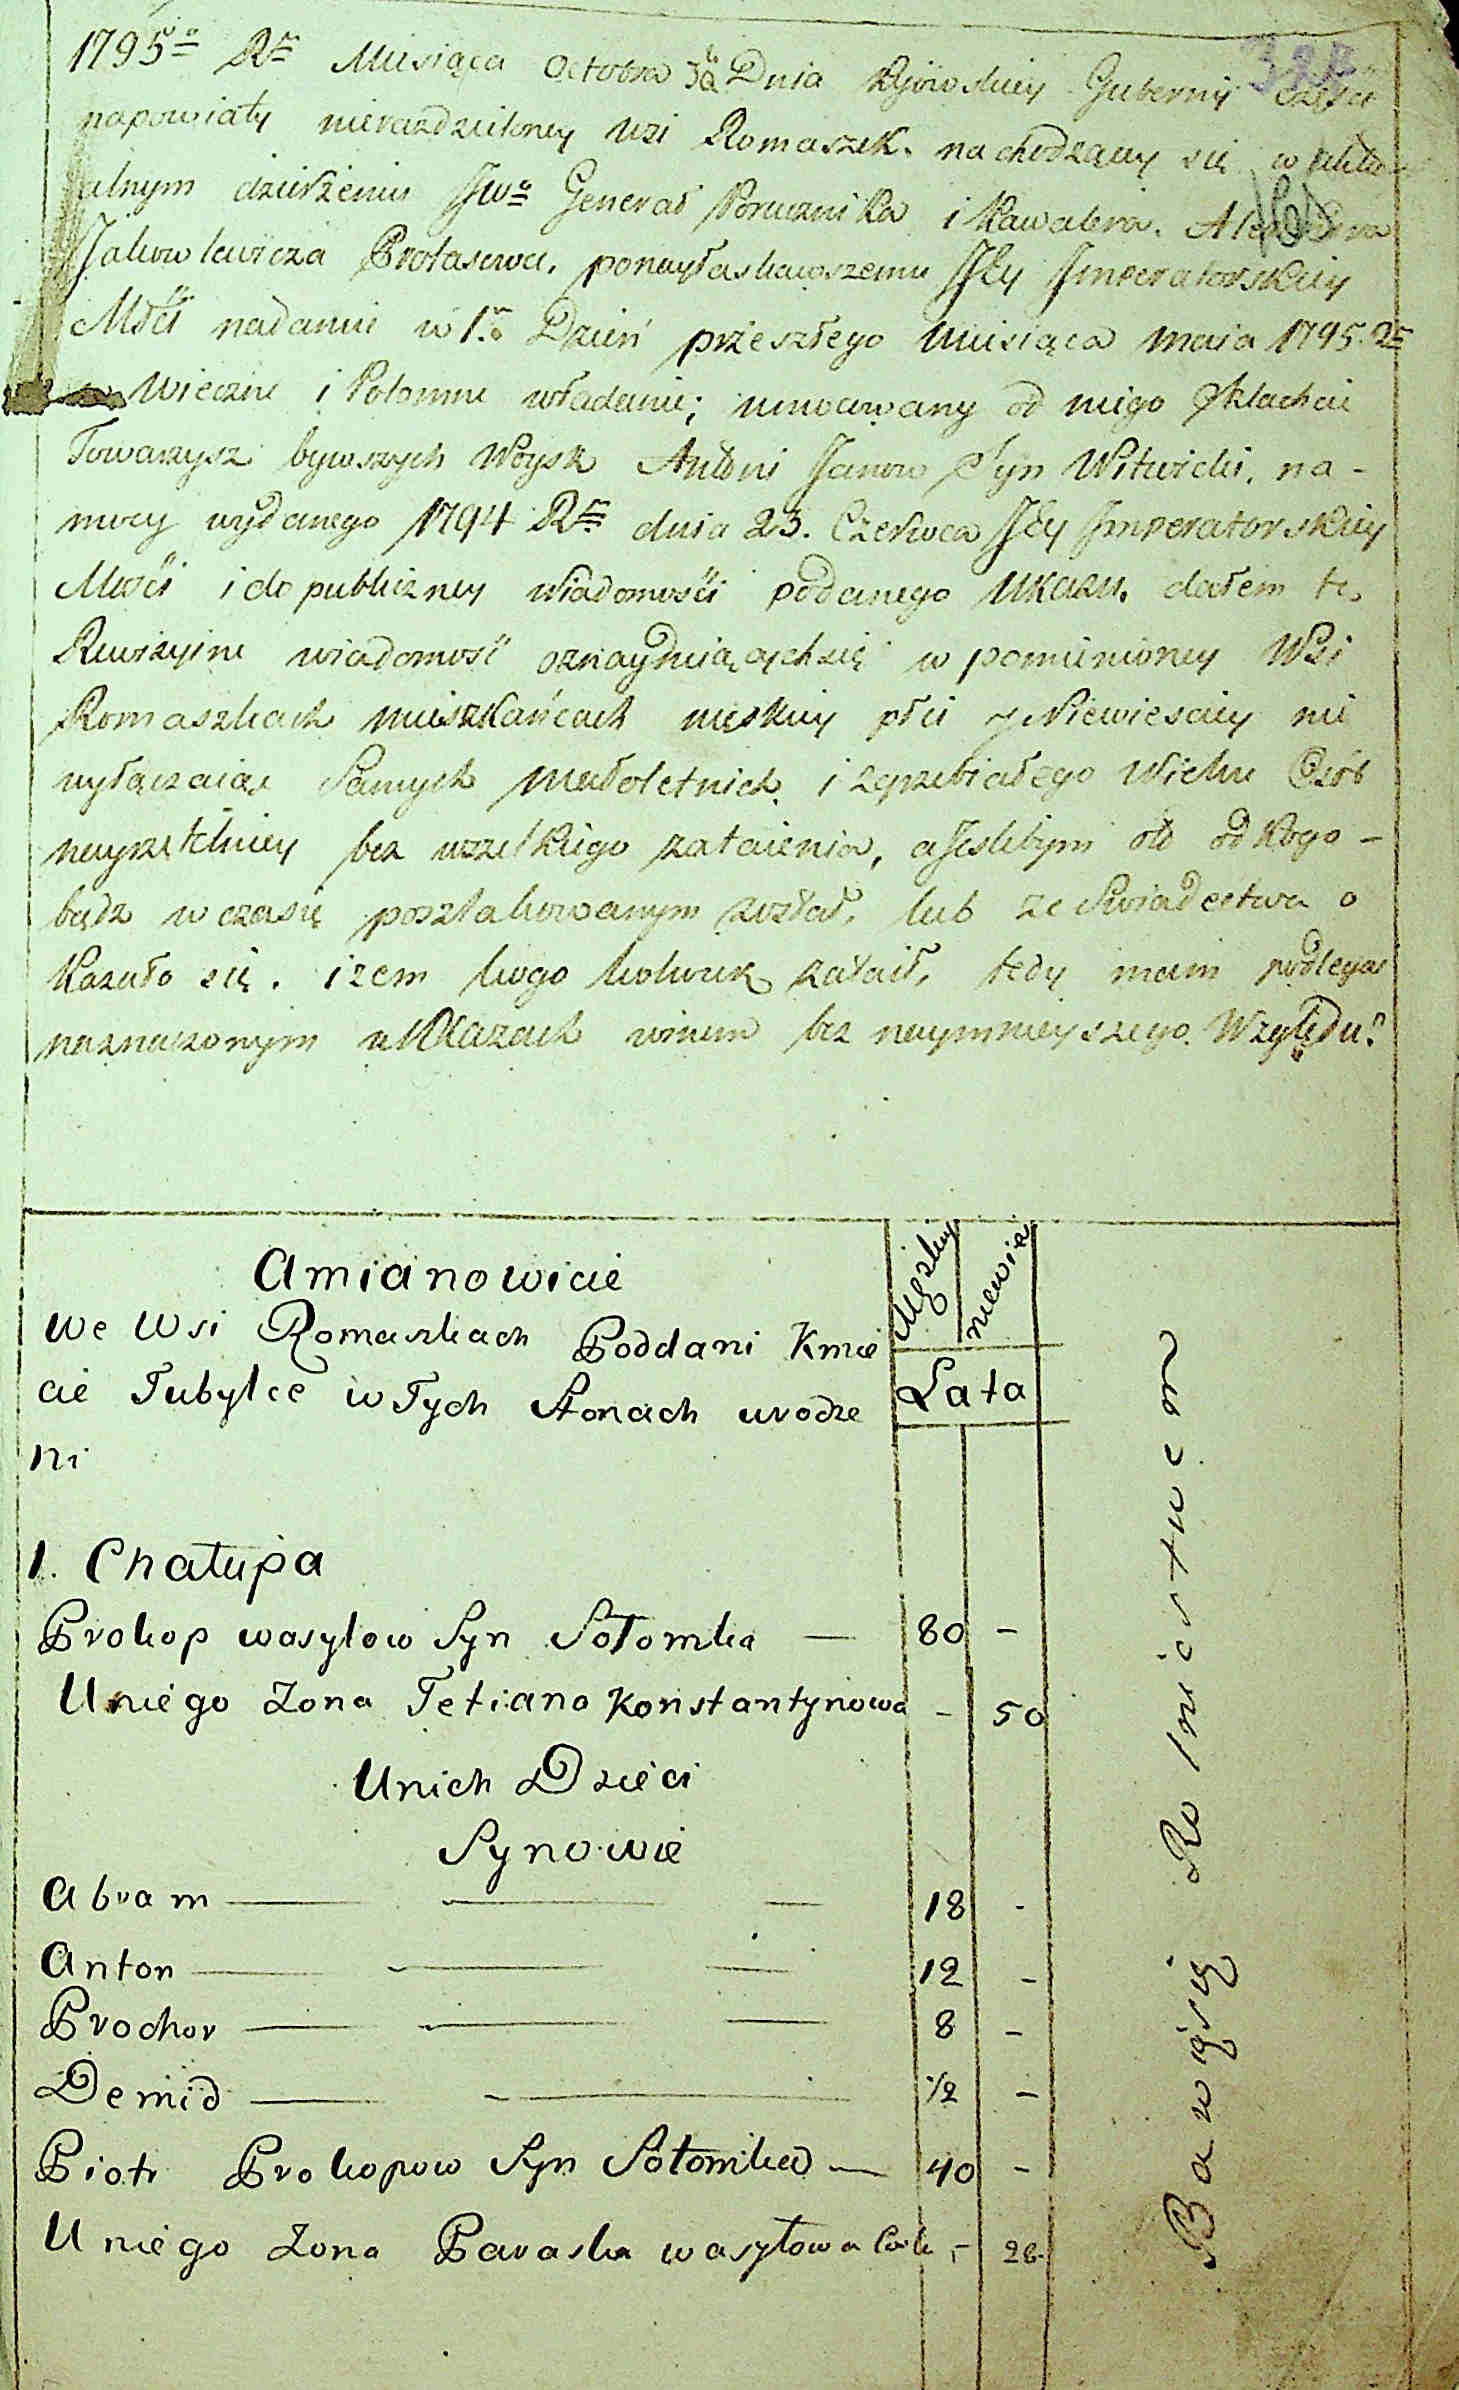 1795º Rº Miesiąca Octobra Dnia Kijowskiey Gubernij części
napowiaty nierozdzielney wsi Romaszek. nachodzący się w
alnym dzierżeniu JWº Generał Porucznika i Kawalera.
Jakowlewicza Protasewa. ponayłaskawszemu JEy Jmperatorskiey
Mości nadaniu w 1º Dzień przeszłego Miesiąca Maia 1795 Rº
Wieczne i Potomne władanie; umocowany od niego Szlachcic
Towarzysz bywszych Woysk Antoni Janow Syn Witwicki. na-
mocy wydanego 1794 Rº dnia 23. Czerwca JEy Jmperatorskiey
Mości i do publiczney wiadomości podanego Ukazu. dałem tę
Rewizyine wiadomość oznayduiącychsię w pomienioney Wsi
Romaszkach mieszkańcach męskiey płci y Niewiesciey nie
wyłączaiąc Samych małoletnich i zgrzebiałego Wieku Osób
nayrzetelniey bez wszelkiego zataienia, a Jeslibym od kogo-
bądz w czasie poszlakowanym został, lub ze Swiadectwa o
kazało się. iżem kogo kolwiek zataił, tedy mam podlegać
naznaczonym uKkazach winem bez naymnieyszego Względu.
Amianowicie
We Wsi Romaszkach Poddani Kmie
cie Tubylce w Tych Stonach urodze
ni
Męzkiey niewie
Lata
1. Chałupa
Prokop wasylow Syn Sołomka — 80 -
Uniego Zona Tetiana Konstantynowa - 50
Unich Dzieci
Synowie
Abram — 18 -
Anton — 12 -
Prochor — 8 -
Demid — 1/2 -
Piotr Prokopow Syn Sołomka — 40 -
Uniego Zona Paraska wasyłowa - 28
Bawiąsię Rolnictwem